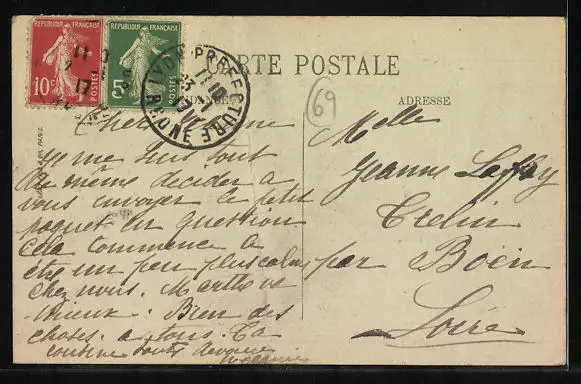 REPUBLIQUE FRANÇAISE
10c
POSTES
REPUBLIQUE FRANÇAISE
5c
POSTES
LYON-PREFECTURE
RHONE
CARTE POSTALE
69
ADRESSE
Chère
Je me suis tout
de même decider a
vous envoyer le petit
paquet en question
cela commence a
être un peu plus calme
chez nous. Marthe va
mieux. Bien des
choses a tous. Ta
cousine toute devouée
Melle
Jeanne
Trelin
par Boën
Loire